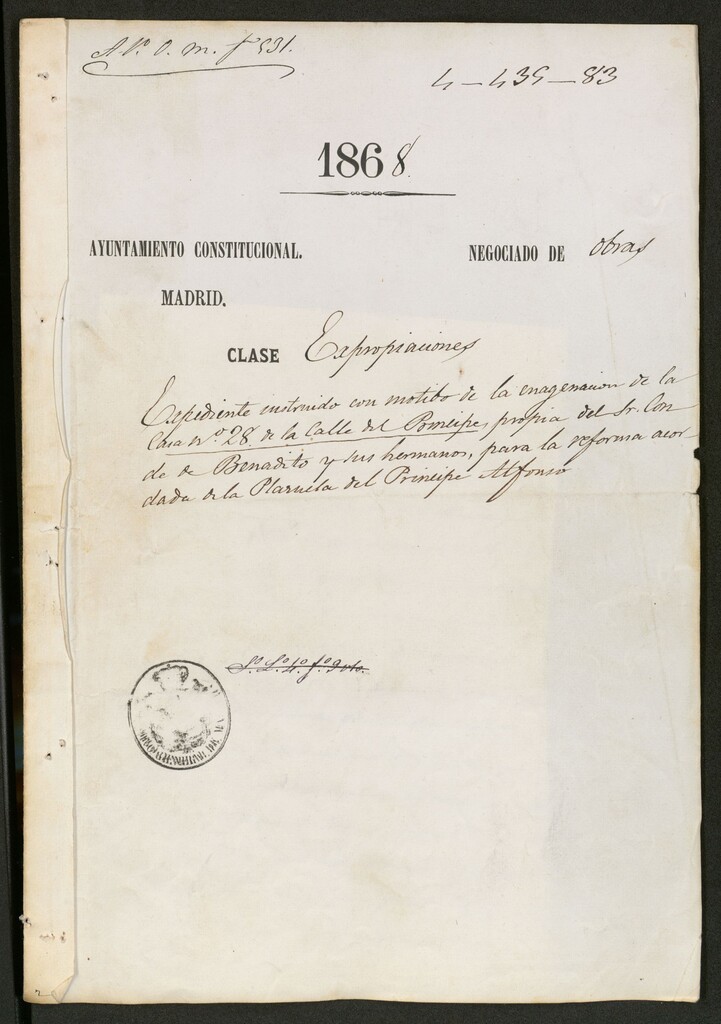 A. P. O. m. fº 531.
4-439-83
1868.
AYUNTAMIENTO CONSTITUCIONAL.
NEGOCIADO DE obras
MADRID.
CLASE Expropiaciones
Expediente instruido con motibo de la enagenacion de la
Casa nº 28 de la Calle del Principe, propia del Sr. Con
de de Benadito y sus hermanos, para la reforma acor-
dada de la Plazuela del Principe Alfonso